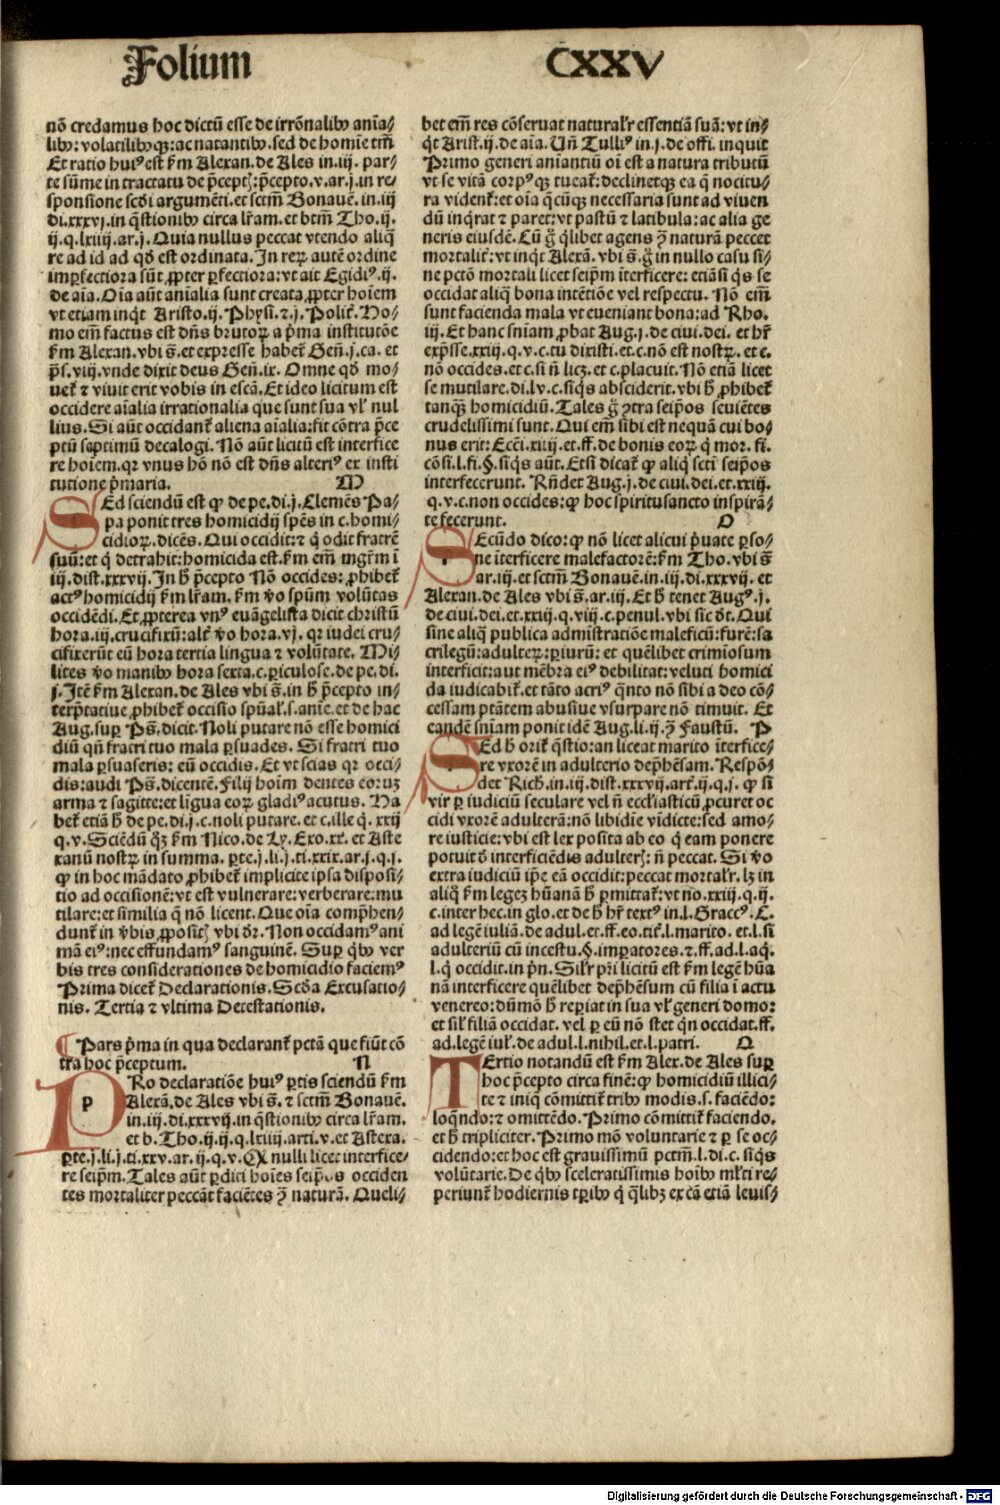 Folium CXXV
nō credamus hoc dictū esse de irrōnalibꝫ anīa/
libꝫ: volatilibꝫqꝫ: ac natantibꝫ. sed de homīe tm̄
Et ratio huiꝰ est ẜm Alexan. de Ales in. iij. par/
te sūme in tractatu de p̄ceptꝭ: p̄cepto. v. ar. j. in re/
sponsione scd̓i argumēti. et sctm̄ Bonauē. in. iij
di. xxxvj. in q̄stionibꝫ circa lr̄am. et btm̄ Tho. ij.
ij. q. lxiiij. ar. j. Quia nullus peccat vtendo aliq̄
re ad id ad qd̓ est ordinata. In reꝝ autē ordine
imꝑfectiora sūt ꝓpter ꝑfectiora: vt ait Egidiꝰ. ij.
de aīa. Oīa aūt anīalia sunt creata ꝓpter hoīem
vt etiam inqt̓ Aristo. ij. Physi. ⁊. j. Polit̓. Ho/
mo em̄ factus est dn̄s brutoꝝ a p̓ma institutōe
ẜm Alexan. vbi s̄. et expresse habet̓ Gen̄. j. ca. et
p̄s. viij. vnde dixit deus Gen̄. ix. Omne qd̓ mo/
uet̓ ⁊ viuit erit vobis in escā. Et ideo licitum est
occidere aīalia irrationalia que sunt sua vl̓ nul
lius. Si aūt occidant̓ aliena aīalia: fit cōtra p̄ce
ptū septimū decalogi. Nō aūt licitū est interfice
re hoīem. qr vnus hō nō est dn̄s alteriꝰ ex insti
tutione p̓maria. M
Sed sciendū est ꝙ de pe. di. j. Clemēs Pa/
pa ponit tres homicidij spēs in c. homi/
cidioꝝ. dicēs. Qui occidit: ⁊ q̓ odit fratrē
suū: et q̓ detrahit: homicida est. ẜm em̄ mgr̄m ī
iij. dist. xxxvij. In h̓ p̄cepto Nō occides: ꝓhibet̓
actꝰ homicidij ẜm lr̄am. ẜm v̓o spūm volūtas
occidēdi. Et ꝓpterea vnꝰ euāgelista dicit christū
hora. iij. crucifixū: alt̓ v̓o hora. vj. qr iudei cru/
cifixerūt eū hora tertia lingua ⁊ volūtate. Mi/
lites v̓o manibꝫ hora sexta. c. ꝑiculose. de pe. di.
j. Itē ẜm Alexan. de Ales vbi s̄. in h̓ p̄cepto in/
terp̄tatiue ꝓhibet̓ occisio spūal̓. s. anīe. et de hac
Aug. suꝑ Ps̄. dicit. Noli putare nō esse homici
diū qn̄ fratri tuo mala ꝑsuades. Si fratri tuo
mala ꝑsuaseris: eū occidis. Et vt scias qr occi/
dis: audi Ps̄. dicentē. Filij hoīm dentes eorum
arma ⁊ sagitte: et ligua eoꝝ gladiꝰ acutus. Ha
bet̓ etiā h̓ de pe. di. j. c. noli putare. et c. ille q̓. xxij
q. v. Sciēdū qꝫ ẜm Nico. de Ly. Exo. xx. et Aste
xanū nostꝝ in summa. ꝑte. j. li. j. ti. xxix. ar. j. q. j.
ꝙ in hoc mādato ꝓhibet̓ implicite ipsa disposi/
tio ad occisionē: vt est vulnerare: verberare: mu
tilare: et similia q̄ nō licent. Que oīa comp̄hen/
dunt̓ in v̓bis ꝓpositꝭ vbi dr̄. Non occidamꝰ ani
mā eiꝰ: nec effundamꝰ sanguinē. Suꝑ q̓bꝫ ver
bis tres considerationes de homicidio faciemꝰ
Prima dicet̓ Declarationis. Scd̓a Excusatio/
nis. Tertia ⁊ vltima Detestationis.
Pars p̓ma in qua declarant̓ pctā que fiūt cō
tra hoc p̄ceptum. N
PRo declaratiōe huiꝰ ꝑtis sciendū ẜm
Alexā. de Ales vbi s̄. ⁊ sctm̄ Bonauē.
in. iij. di. xxxvij. in q̄stionibꝫ circa lr̄am.
et b. Tho. ij. ij. q. lxiiij. arti. v. et Astexa.
ꝑte. j. li. j. ti. xxv. ar. ij. q. v. Qꝫ nulli licet interfice/
re seipm̄. Tales aūt ꝑditi hoīes seipōs occiden
tes mortaliter peccāt faciētes ꝯ̄ naturā. Queli/
bet em̄ res cōseruat natural̓r essentiā suā: vt in/
qt̓ Arist. ij. de aīa. Un̄ Tulliꝰ in. j. de offi. inquit
Primo generi animantiū oī est a natura tributū
vt se vitā corpꝰqꝫ tueat̓: declinetqꝫ ea q̄ nocitu/
ra vident̓: et oīa q̄cūqꝫ necessaria sunt ad viuen
dū inq̓rat ⁊ paret: vt pastū ⁊ latibula: ac alia ge
neris eiusdē. Cū g̊ q̓libet agens ꝯ̄ naturā peccet
mortalit̓: vt inqt̓ Alexā. vbi s̄. g̊ in nullo casu si/
ne pctō mortali licet seipm̄ īterficere: etiā si q̓s se
occidat aliq̄ bona intētiōe vel respectu. Nō em̄
sunt facienda mala vt eueniant bona: ad Rho.
iij. Et hanc sn̄iam ꝓbat Aug. j. de ciui. dei. et hr̄
exp̄sse. xxiij. q. v. c. tu dixisti. et. c. nō est nostꝝ. et c.
nō occides. et c. si n̄ licꝫ. et c. placuit. Nō etiā licet
se mutilare. di. lv. c. si q̓s absciderit. vbi h̓ ꝓhibet̓
tanqꝫ homicidiū. Tales g̊ ꝯtra seipōs seuiētes
crudelissimi sunt. Qui em̄ sibi est nequā cui bo/
nus erit: Ecci. xiiij. et. ff. de bonis eoꝝ q̓ mor. si.
cōsi. l. fi. §. si q̓s aūt. Etsi dicat̓ ꝙ aliq̓ scti seipōs
interfecerunt. Rn̄det Aug. j. de ciui. dei. et. xxiij.
q. v. c. non occides: ꝙ hoc spiritusancto inspirā/
te fecerunt. O
SEcūdo dico: ꝙ nō licet alicui p̓uate ꝑso/
ne īterficere malefactorē: ẜm Tho. vbi s̄
ar. iij. et sctm̄ Bonauē. in. iij. di. xxxvij. et
Alexan. de Ales vbi s̄. ar. iij. Et h̓ tenet Augꝰ. j.
de ciui. dei. et. xxiij. q. viij. c. penul. vbi sic dt̓. Qui
sine aliq̄ publica admīstratiōe maleficū: furē: sa
crilegū: adulteꝝ: ꝑiurū: et quēlibet crimīosum
interficit: aut mēbra eiꝰ debilitat: veluti homici
da iudicabit̓. et tāto acriꝰ q̄nto nō sibi a deo cō/
cessam ptātem abusiue vsurpare nō timuit. Et
eandē sn̄iam ponit idē Aug. li. ij. ꝯ̄ Faustū. P
SEd h̓ orit̓ q̄stio: an liceat marito īterfice/
re vxorē in adulterio dep̄hēsam. Respō/
det Rich. in. iij. dist. xxxvij. art̓. ij. q. j. ꝙ si
vir ꝑ iudiciū seculare vel n̄ eccl̓iasticū ꝓcuret oc
cidi vxorē adulterā: nō libidīe vīdicte: sed amo/
re iusticie: vbi est lex posita ab eo q̓ eam ponere
potuit d̓ interficiēdis adulterꝭ: n̄ peccat. Si v̓o
extra iudiciū ip̄e eā occidit: peccat mortal̓r. lꝫ in
aliq̊ ẜm legeꝫ hūanā h̓ ꝑmittat̓: vt no. xxiij. q. ij.
c. inter hec. in glo. et de h̓ hr̄ textꝰ in. l. Graccꝰ. C.
ad legē iuliā. de adul. et. ff. eo. tit̓. l. marito. et. l. si
adulteriū cū incestu. §. imꝑatores. ⁊. ff. ad. l. aq̓.
l. q̓ occidit. in pn̄. Sil̓r pr̄i licitū est ẜm legē hūa
nā interficere quēlibet dep̄hēsum cū filia ī actu
venereo: dūmō h̓ reꝑiat in sua vl̓ generi domo:
et sil̓ filiā occidat. vel ꝑ eū nō stet qn̄ occidat. ff.
ad. legē iul̓. de adul. l. nihil. et. l. patri. Q
TErtio notandū est ẜm Alex. de Ales suꝑ
hoc p̄cepto circa finē: ꝙ homicidiū illici/
te ⁊ iniq̄ cōmittit̓ tribꝫ modis. s. faciēdo:
loq̄ndo: ⁊ omittēdo. Primo cōmittit̓ faciendo.
et h̓ tripliciter. Primo mō voluntarie ⁊ ꝑ se oc/
cidendo: et hoc est gravissimū pctm̄. l. di. c. si q̓s
volūtarie. De q̓bꝫ sceleratissimis hoībꝫ ml̓ti re/
periunt̓ hodiernis tꝑibꝫ q̓ q̄libꝫ ex cā etiā leuis/